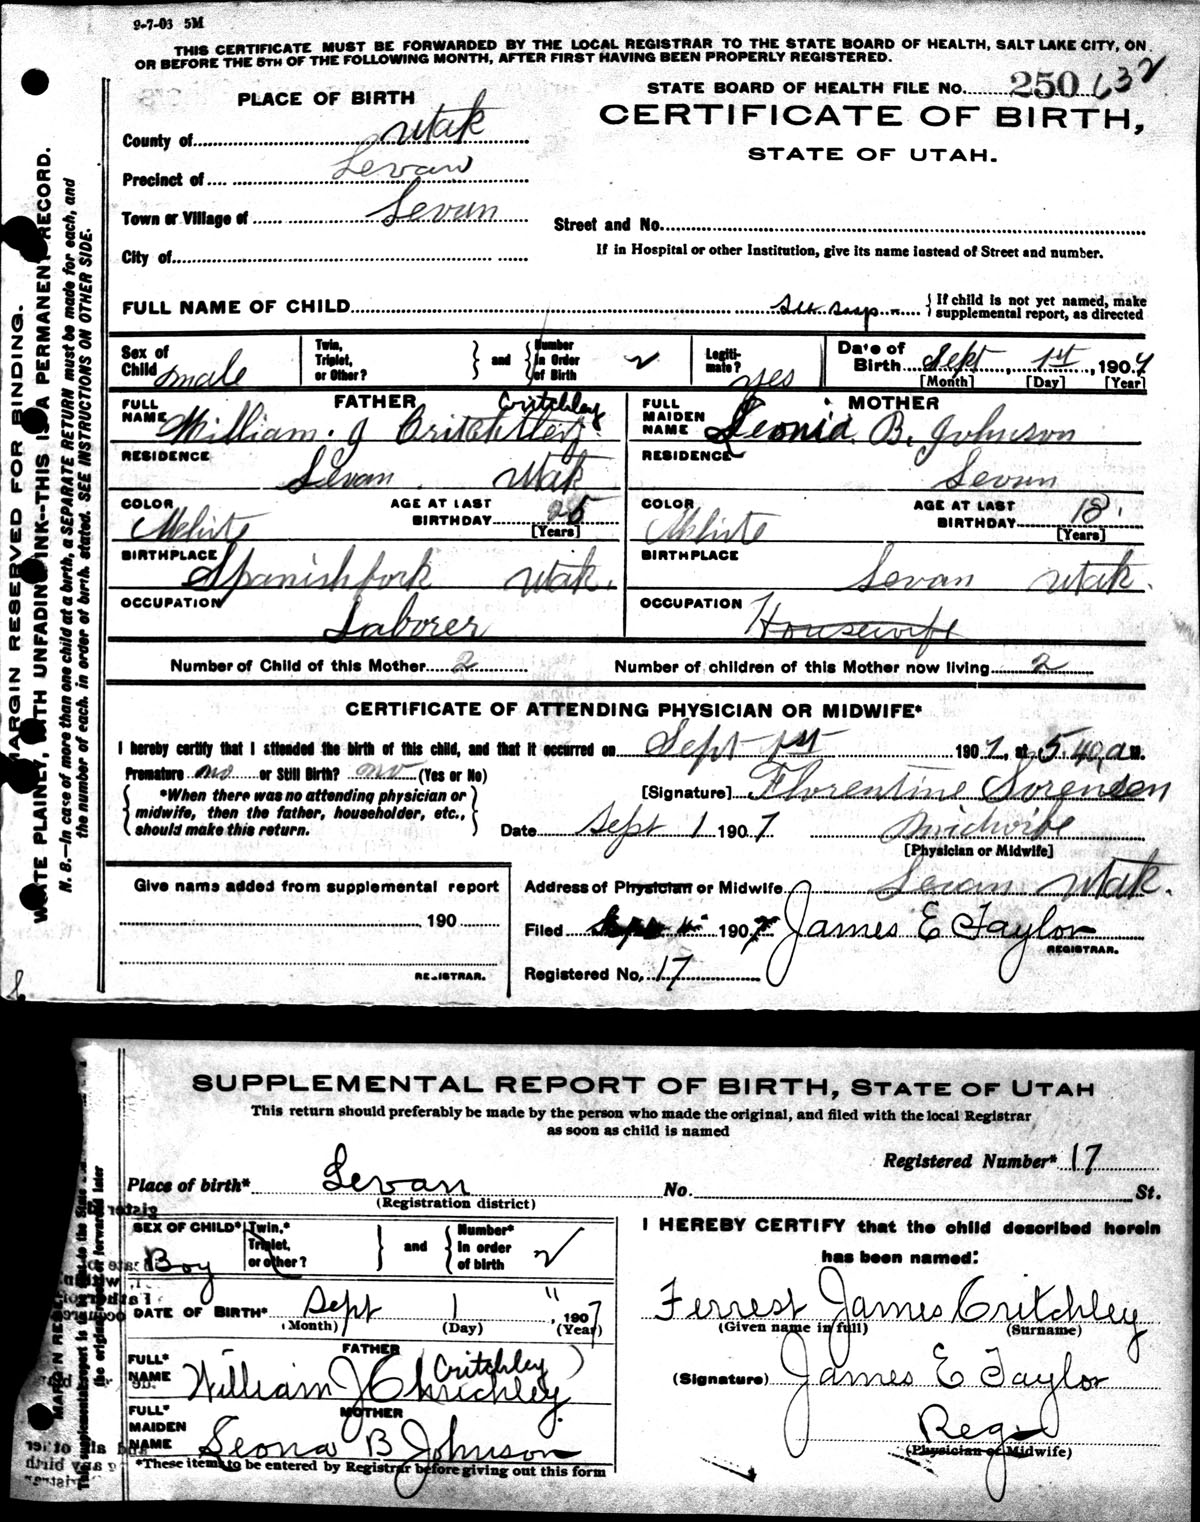 9-7-03 5M
THIS CERTIFICATE MUST BE FORWARDED BY THE LOCAL REGISTRAR TO THE STATE BOARD OF HEALTH, SALT LAKE CITY, ON
OR BEFORE THE 5TH OF THE FOLLOWING MONTH, AFTER FIRST HAVING BEEN PROPERLY REGISTERED.
STATE BOARD OF HEALTH FILE NO. 250 632
PLACE OF BIRTH
CERTIFICATE OF BIRTH,
STATE OF UTAH.
County of Utah
Precinct of Levan
Town or Village of Levan
Street and No.
City of
If in Hospital or other Institution, give its name instead of Street and number.
FULL NAME OF CHILD See Supp
If child is not yet named, make
supplemental report, as directed
Sex of Child male
Twin, Triplet, or Other? and Number in Order of Birth 2
Legiti-mate? yes
Date of Birth Sept 1st, 1907
[Month] [Day] [Year]
FATHER
FULL NAME William J Critchley Critchley
RESIDENCE Levan Utah
COLOR White AGE AT LAST BIRTHDAY 25 [Years]
BIRTHPLACE Spanishfork Utah.
OCCUPATION Laborer
MOTHER
FULL MAIDEN NAME Leonia B. Johnson
RESIDENCE Levan
COLOR White AGE AT LAST BIRTHDAY 18 [Years]
BIRTHPLACE Levan Utah.
OCCUPATION Housewife
Number of Child of this Mother 2 Number of children of this Mother now living 2
CERTIFICATE OF ATTENDING PHYSICIAN OR MIDWIFE*
I hereby certify that I attended the birth of this child, and that it occurred on Sept 1st 1907, at 5 40 a M.
Premature no or Still Birth? no (Yes or No)
*When there was no attending physician or
midwife, then the father, householder, etc.,
should make this return.
[Signature] Florentine Sorensen
Date Sept 1 1907 midwife
[Physician or Midwife]
Give name added from supplemental report
190
REGISTRAR.
Address of Physician or Midwife Levan Utah.
Filed 1907 James E Taylor
REGISTRAR.
Registered No. 17
MARGIN RESERVED FOR BINDING.
WRITE PLAINLY, WITH UNFADING INK--THIS IS A PERMANENT RECORD.
N. B.—In case of more than one child at a birth, a SEPARATE RETURN must be made for each, and
the number of each, in order of birth, stated. SEE INSTRUCTIONS ON OTHER SIDE.
SUPPLEMENTAL REPORT OF BIRTH, STATE OF UTAH
This return should preferably be made by the person who made the original, and filed with the local Registrar
as soon as child is named
Registered Number* 17
Place of birth* Levan No. St.
(Registration district)
SEX OF CHILD* Boy
Twin,* Triplet, or other? and Number* in order of birth 2
DATE OF BIRTH* Sept 1 1907
(Month) (Day) (Year)
FATHER
FULL* NAME William J Chrichley (Critchley)
MOTHER
FULL* MAIDEN NAME Leona B Johnson
*These items to be entered by Registrar before giving out this form
I HEREBY CERTIFY that the child described herein
has been named:
Ferrest James Critchley
(Given name in full) (Surname)
(Signature) James E Taylor
Reg
(Physician or Midwife)